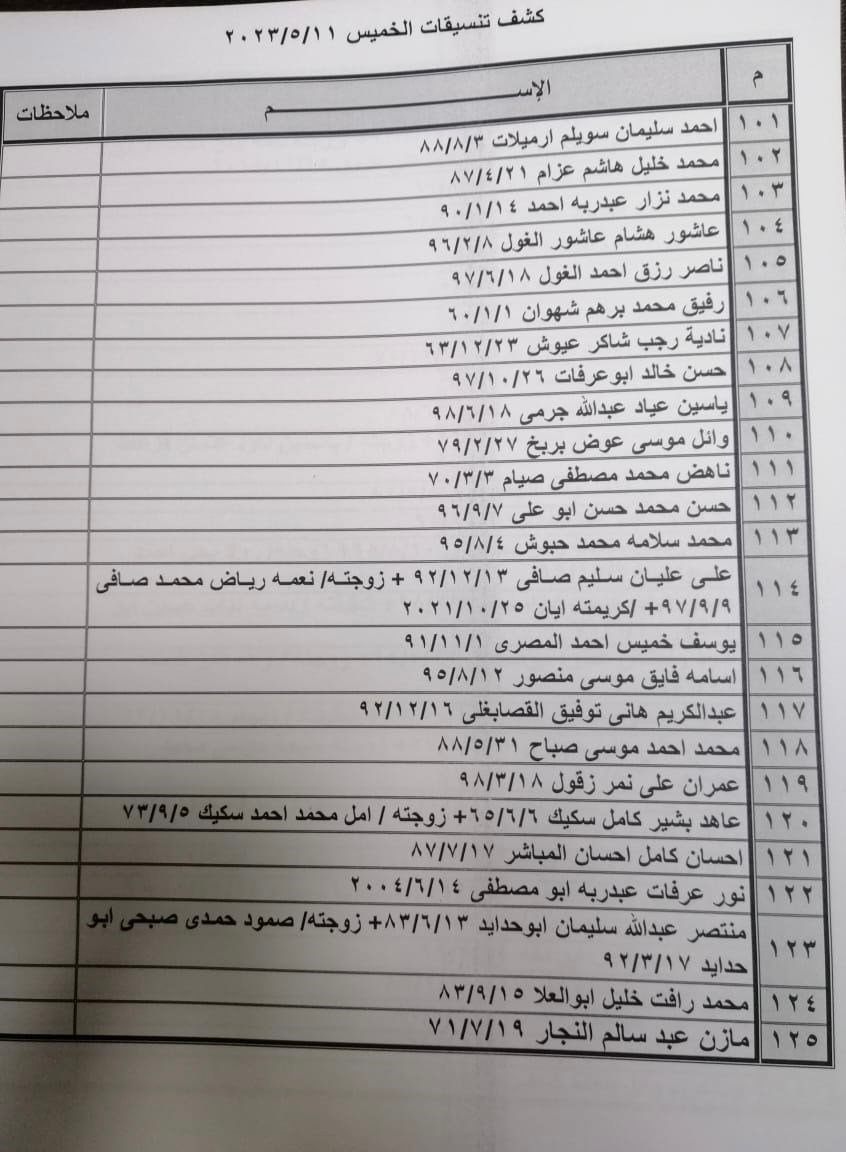 كشف تنسيقات الخميس ٢٠٢٣/٥/١١
م الإســـــــــــــــم ملاحظات
١٠١ احمد سليمان سويلم ارميلات ٨٨/٨/٣
١٠٢ محمد خليل هاشم عزام ٨٧/٤/٢١
١٠٣ محمد نزار عبدربه احمد ٩٠/١/١٤
١٠٤ عاشور هشام عاشور الغول ٩٦/٢/٨
١٠٥ ناصر رزق احمد الغول ٩٧/٦/١٨
١٠٦ رفيق محمد برهم شهوان ٦٠/١/١
١٠٧ نادية رجب شاكر عيوش ٦٣/١٢/٢٣
١٠٨ حسن خالد ابوعرفات ٩٧/١٠/٢٦
١٠٩ ياسين عياد عبدالله جرمى ٩٨/٦/١٨
١١٠ وائل موسى عوض بربخ ٧٩/٢/٢٧
١١١ ناهض محمد مصطفى صيام ٧٠/٣/٣
١١٢ حسن محمد حسن ابو على ٩٦/٩/٧
١١٣ محمد سلامه محمد حبوش ٩٥/٨/٤
١١٤ على عليان سليم صافى ٩٢/١٢/١٣ + زوجته/ نعمه رياض محمد صافى
٩٧/٩/٩+ /كريمته ايان ٢٠٢١/١٠/٢٥
١١٥ يوسف خميس احمد المصرى ٩١/١١/١
١١٦ اسامه فايق موسى منصور ٩٥/٨/١٢
١١٧ عبدالكريم هانى توفيق القصابغلى ٩٢/١٢/١٦
١١٨ محمد احمد موسى صباح ٨٨/٥/٣١
١١٩ عمران على نمر زقول ٩٨/٣/١٨
١٢٠ عاهد بشير كامل سكيك ٦٥/٦/٦+ زوجته / امل محمد احمد سكيك ٧٣/٩/٥
١٢١ احسان كامل احسان المباشر ٨٧/٧/١٧
١٢٢ نور عرفات عبدربه ابو مصطفى ٢٠٠٤/٦/١٤
١٢٣ منتصر عبدالله سليمان ابوحدايد ٨٣/٦/١٣+ زوجته/ صمود حمدى صبحى ابو
حدايد ٩٢/٣/١٧
١٢٤ محمد رافت خليل ابوالعلا ٨٣/٩/١٥
١٢٥ مازن عبد سالم النجار ٧١/٧/١٩